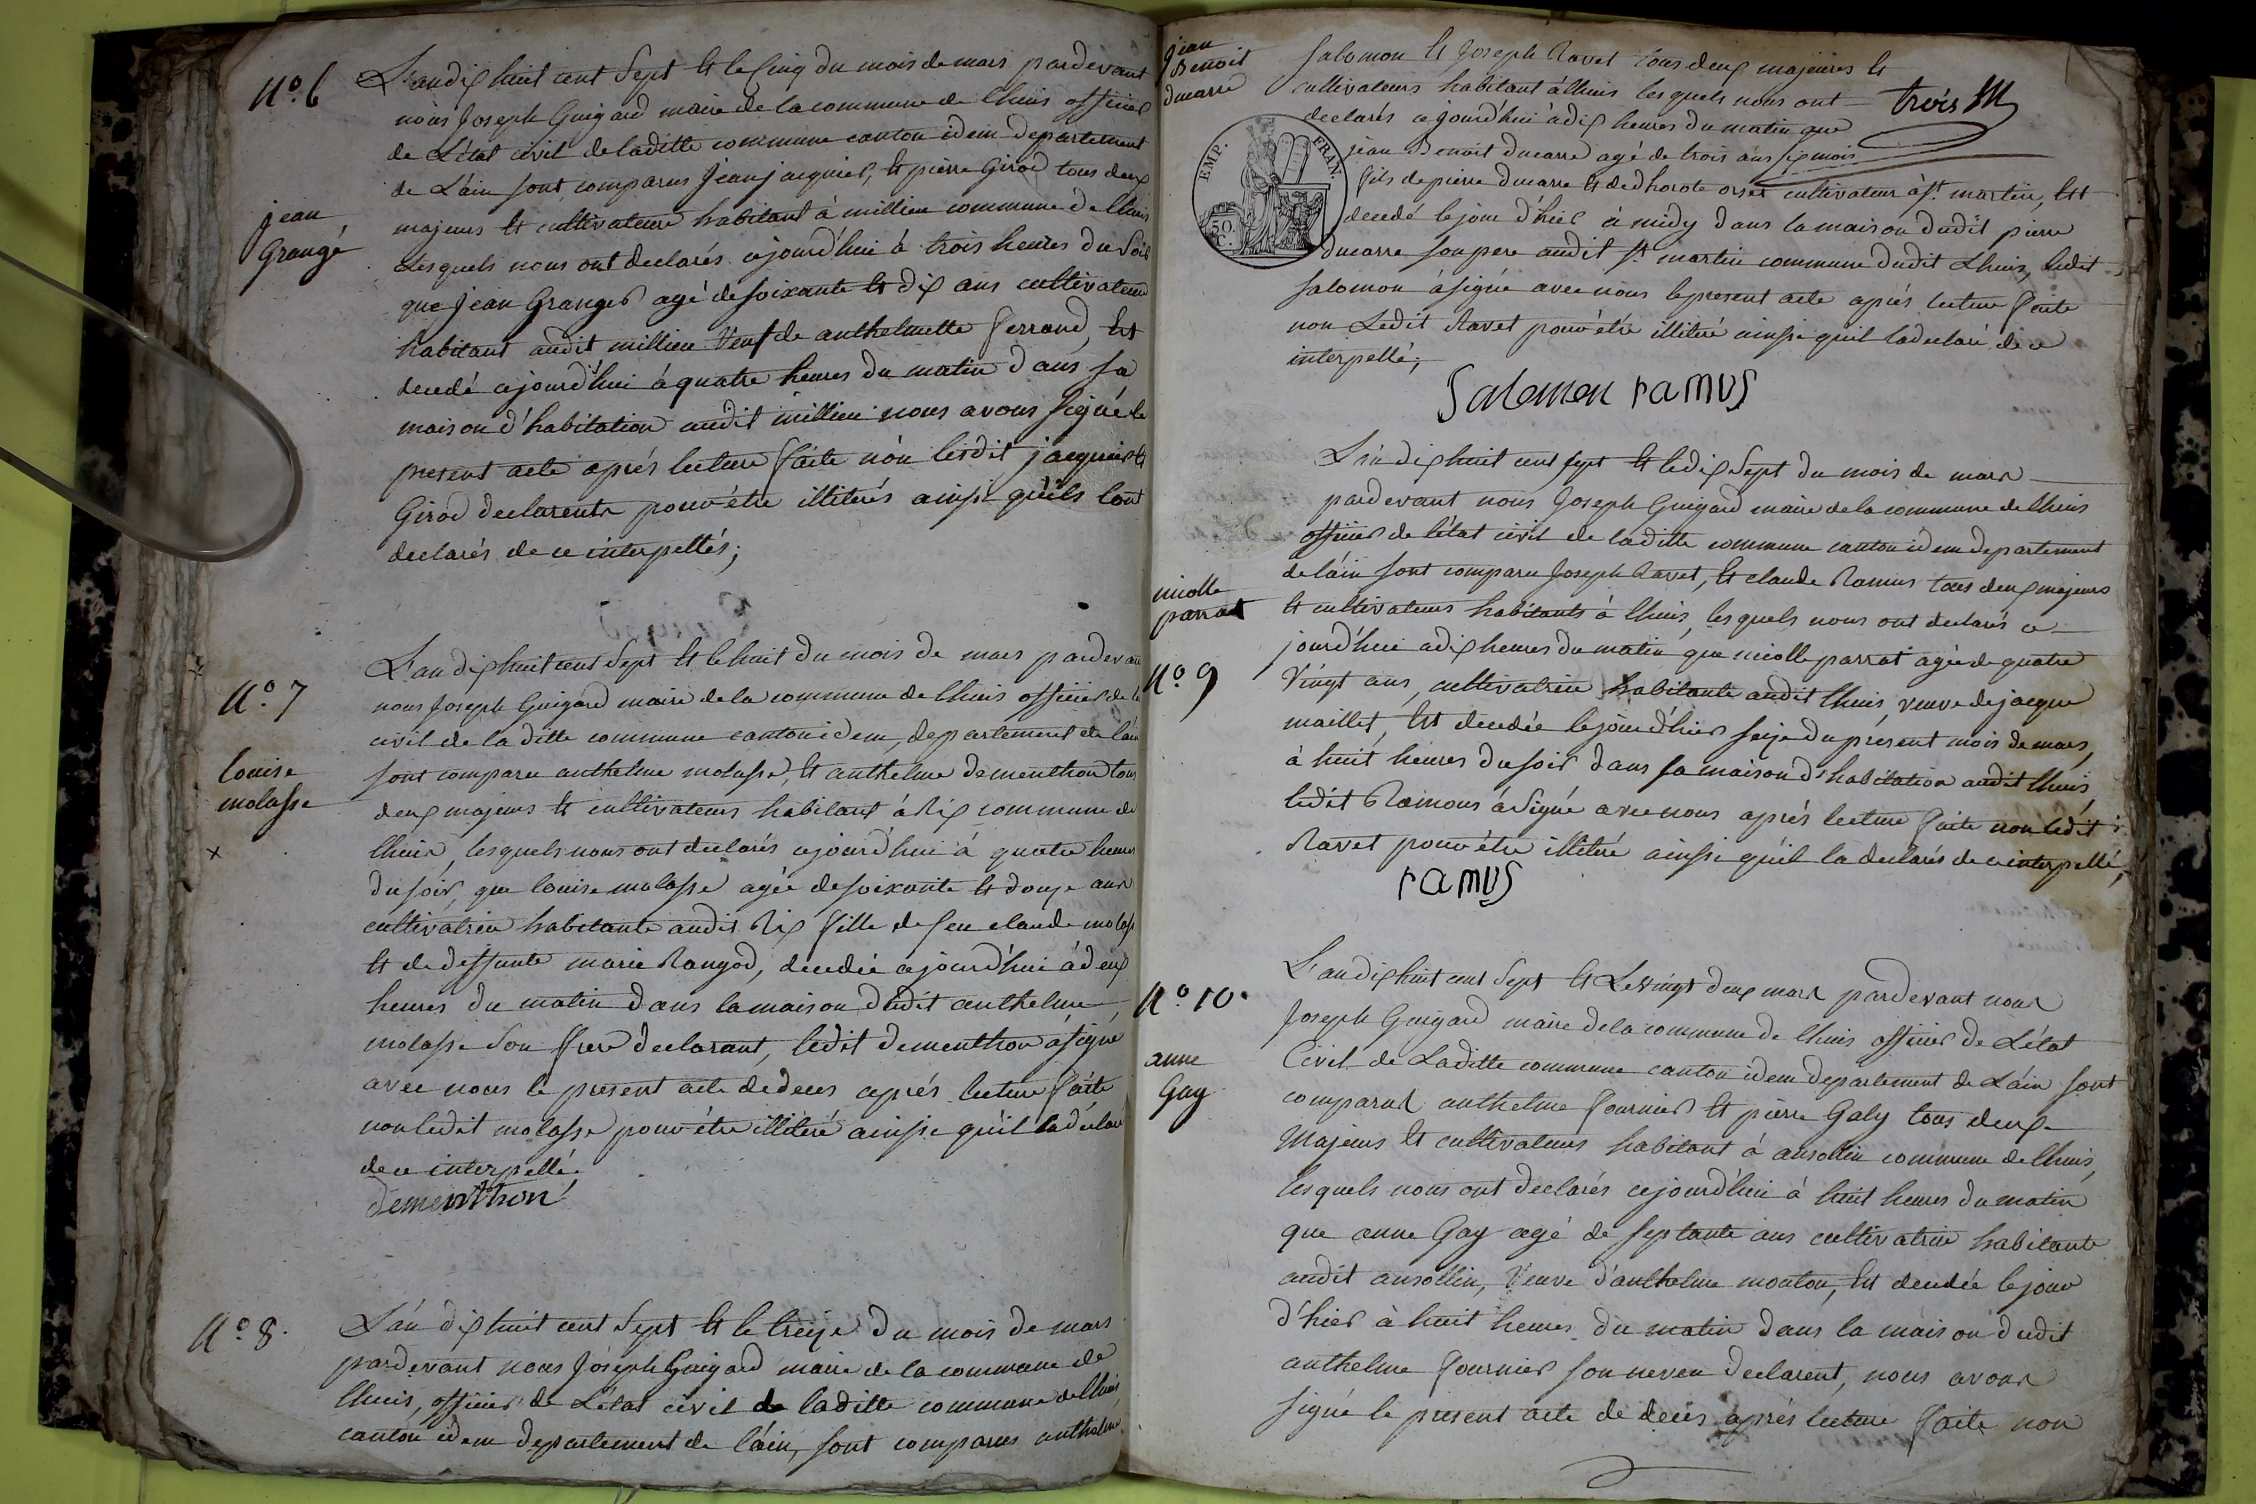 N.º 6
L'an dix huit cent Sept et le Cinq du mois de mars pardevant
nous Joseph Guigard maire de la commune de lhuis officier
de L'état civil de laditte commune canton idem departement
de L'ain sont comparus jean jacquier, et pierre Girod tous deux
majeurs et cultivateurs habitant à millieu commune de lhuis
jean
Grangé
Lesquels nous ont declarés cejourd'hui à trois heures du soir
que jean Granger agé de soixante et dix ans cultivateur
habitant audit millieu Veuf de anthelmette ferrand, Est
decedé cejourd'hui à quatre heures du matin dans sa
maison d'habitation audit millieu nous avons signé le
present acte après lecture faite non lesdit jacquier et
Girod declarents pour être illiterés ainsi qu'ils l'ont
declarés de ce interpellés;
N.º 7
L'an dix huit cent Sept et le huit du mois de mars pardevan
nous Joseph Guigard maire de la commune de lhuis officier de l'é
civil de la ditte commune canton idem, departement de l'ain
louise
molasse
sont comparu anthelme molasse, et anthelme dementhon tous
deux majeurs et cultivateurs habitant à Rix commune de
lhuis, lesquels nous ont declarés cejourd'hui à quatre heures
du soir, que louise molasse agée de soixante et douze ans
cultivatrice habitante audit Rix fille de feu claude molass
et de deffunte marie Rangod, decedée cejourd'hui à deux
heures du matin dans la maison dudit anthelme
molasse Son frere declarant, ledit dementhon a signé
avec nous le present acte de deces après lecture faite
non ledit molasse pour être illiteré ainsi qu'il la déclaré
de ce interpellé.
dementhon
N.º 8.
L'an dix huit cent Sept et le treize du mois de mars
pardevant nous Joseph Guigard maire de la commune de
lhuis, officier de L'état civil de laditte commune de lhuis
canton idem departement de l'ain, sont comparus anthelme
jean
Benoit
ducarre
Salomon et Joseph Ravet tous deux majeures et
cultivateurs habitant à lhuis lesquels nous ont
declarés cejourd'hui à dix heures du matin que
trois
jean Benoit ducarre agé de trois ans six mois
fils de pierre ducarre et de dhorote cultivateur à St. martin, Est
decedé le jour d'hier à midy dans la maison dudit pierre
ducarre son pere audit St. martin commune dudit Lhuis, ledit
EMP. FRAN.
50. C.
Salomon à signé avec nous le present acte après lecture faite
non Ledit Ravet pour être illiteré ainsi qu'il la declaré de ce
interpellé;
Salomon ramus
L'an dix huit cent sept et le dix Sept du mois de mars
pardevant nous Joseph Guigard maire de la commune de lhuis
officier de L'état civil de laditte commune canton idem departement
de l'ain sont comparu Joseph Ravet, et claude Ramus tous deux majeurs
micolle
parrat
et cultivateurs habitants à lhuis, lesquels nous ont declarés ce
jourd'hui a dix heures du matin que micolle parrat agée de quatre
N.º 9
Vingt ans, cultivatrice habitante audit lhuis, veuve de jacque
maillet, Est decedée le jour d'hier seize du present mois de mars,
à huit heures du soir dans sa maison d'habitation audit lhuis,
ledit Ramous à Signé avec nous après lecture faite non ledit
Ravet pour être illiteré ainsi qu'il la declarés de ce interpellé,
ramus
L'an dix huit cent Sept et Le vingt deux mars pardevant nous
N.º 10.
Joseph Guigard maire de la commune de lhuis officier de L'état
Civil de Laditte commune canton idem departement de L'ain sont
anne
Gay
comparus anthelme fournier et pierre Galy tous deux
Majeurs et cultivateurs habitant à ansollin commune de lhuis,
lesquels nous ont declarés cejourd'hui à huit heures du matin
que anne Gay agé de septante ans cultivatrice habitante
audit ansollin, Veuve d'anthelme monton, Est decedée le jour
d'hier à huit heures du matin dans la maison dudit
anthelme fournier son neveu declarent, nous avons
signé le present acte de deces après lecture faite non